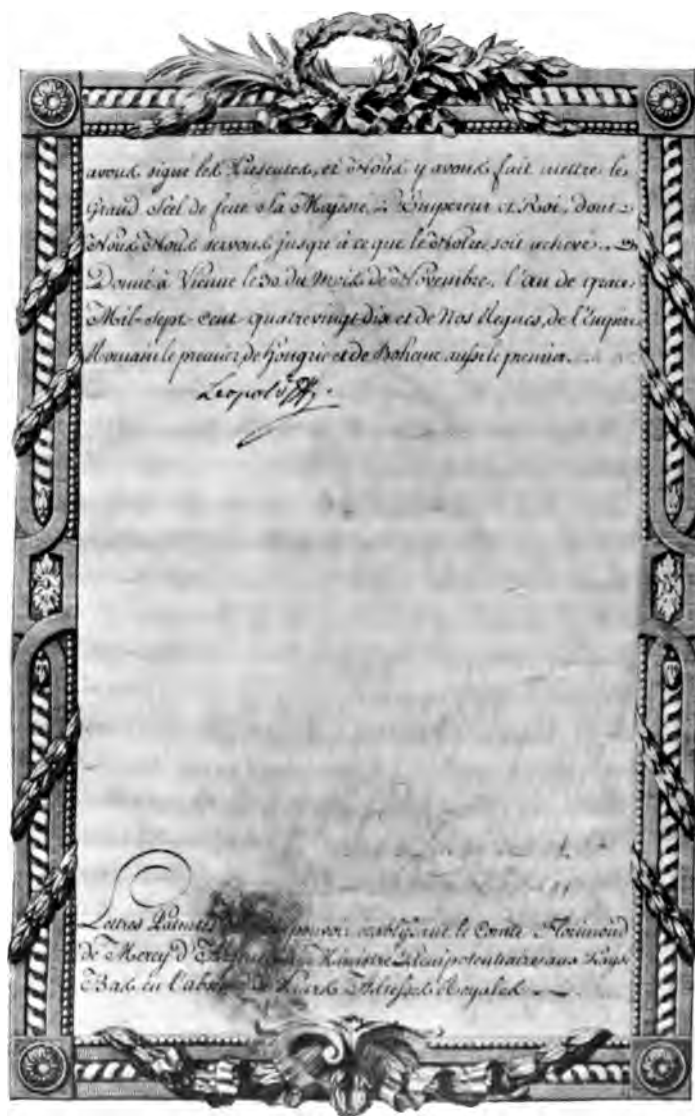 avons signé les Présentes, et Nous y avons fait mettre le
Grand Scel de feue Sa Majesté L'Empereur et Roi, dont
Nous Nous servons jusqu'à ce que le Nôtre soit achevé.
Donné à Vienne le 30 du Mois de Novembre, l'an de grace
Mil-Sept-Cent-quatrevingt Dix et de Nos Regnes, de l'Empire
Romain le premier, de Hongrie et de Boheme aussi le premier.
Leopold
Lettres Patentes pouvoir établissant le Comte Florimond
de Mercy d' Ministre Plenipotentiaire aux Pays
Bas en l'absence de Leurs Altesses Royales